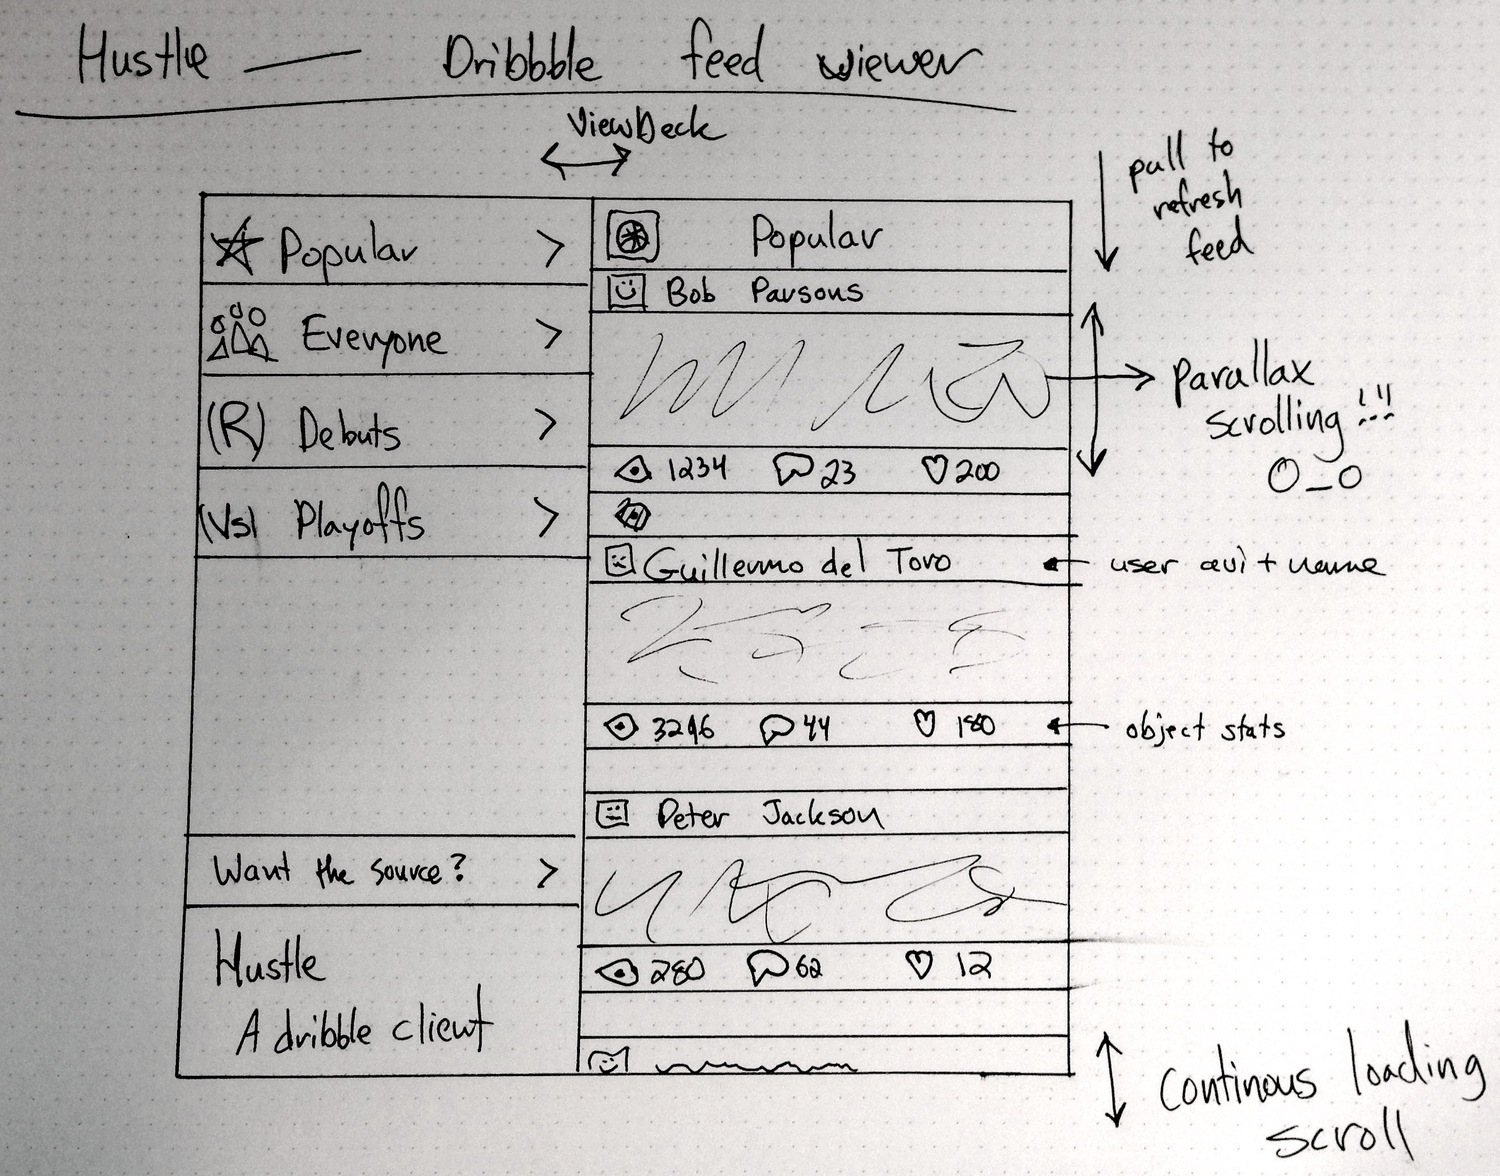 Hustle — Dribbble feed viewer
ViewDeck
Popular >
Everyone >
(R) Debuts >
(Vs) Playoffs >
Want the source? >
Hustle
A dribble client
Popular
Bob Parsons
1234 23 200
Guillermo del Toro
3246 44 180
Peter Jackson
280 62 12
pull to
refresh
feed
parallax
scrolling !!!
O_O
user avi + name
object stats
Continous loading
scroll